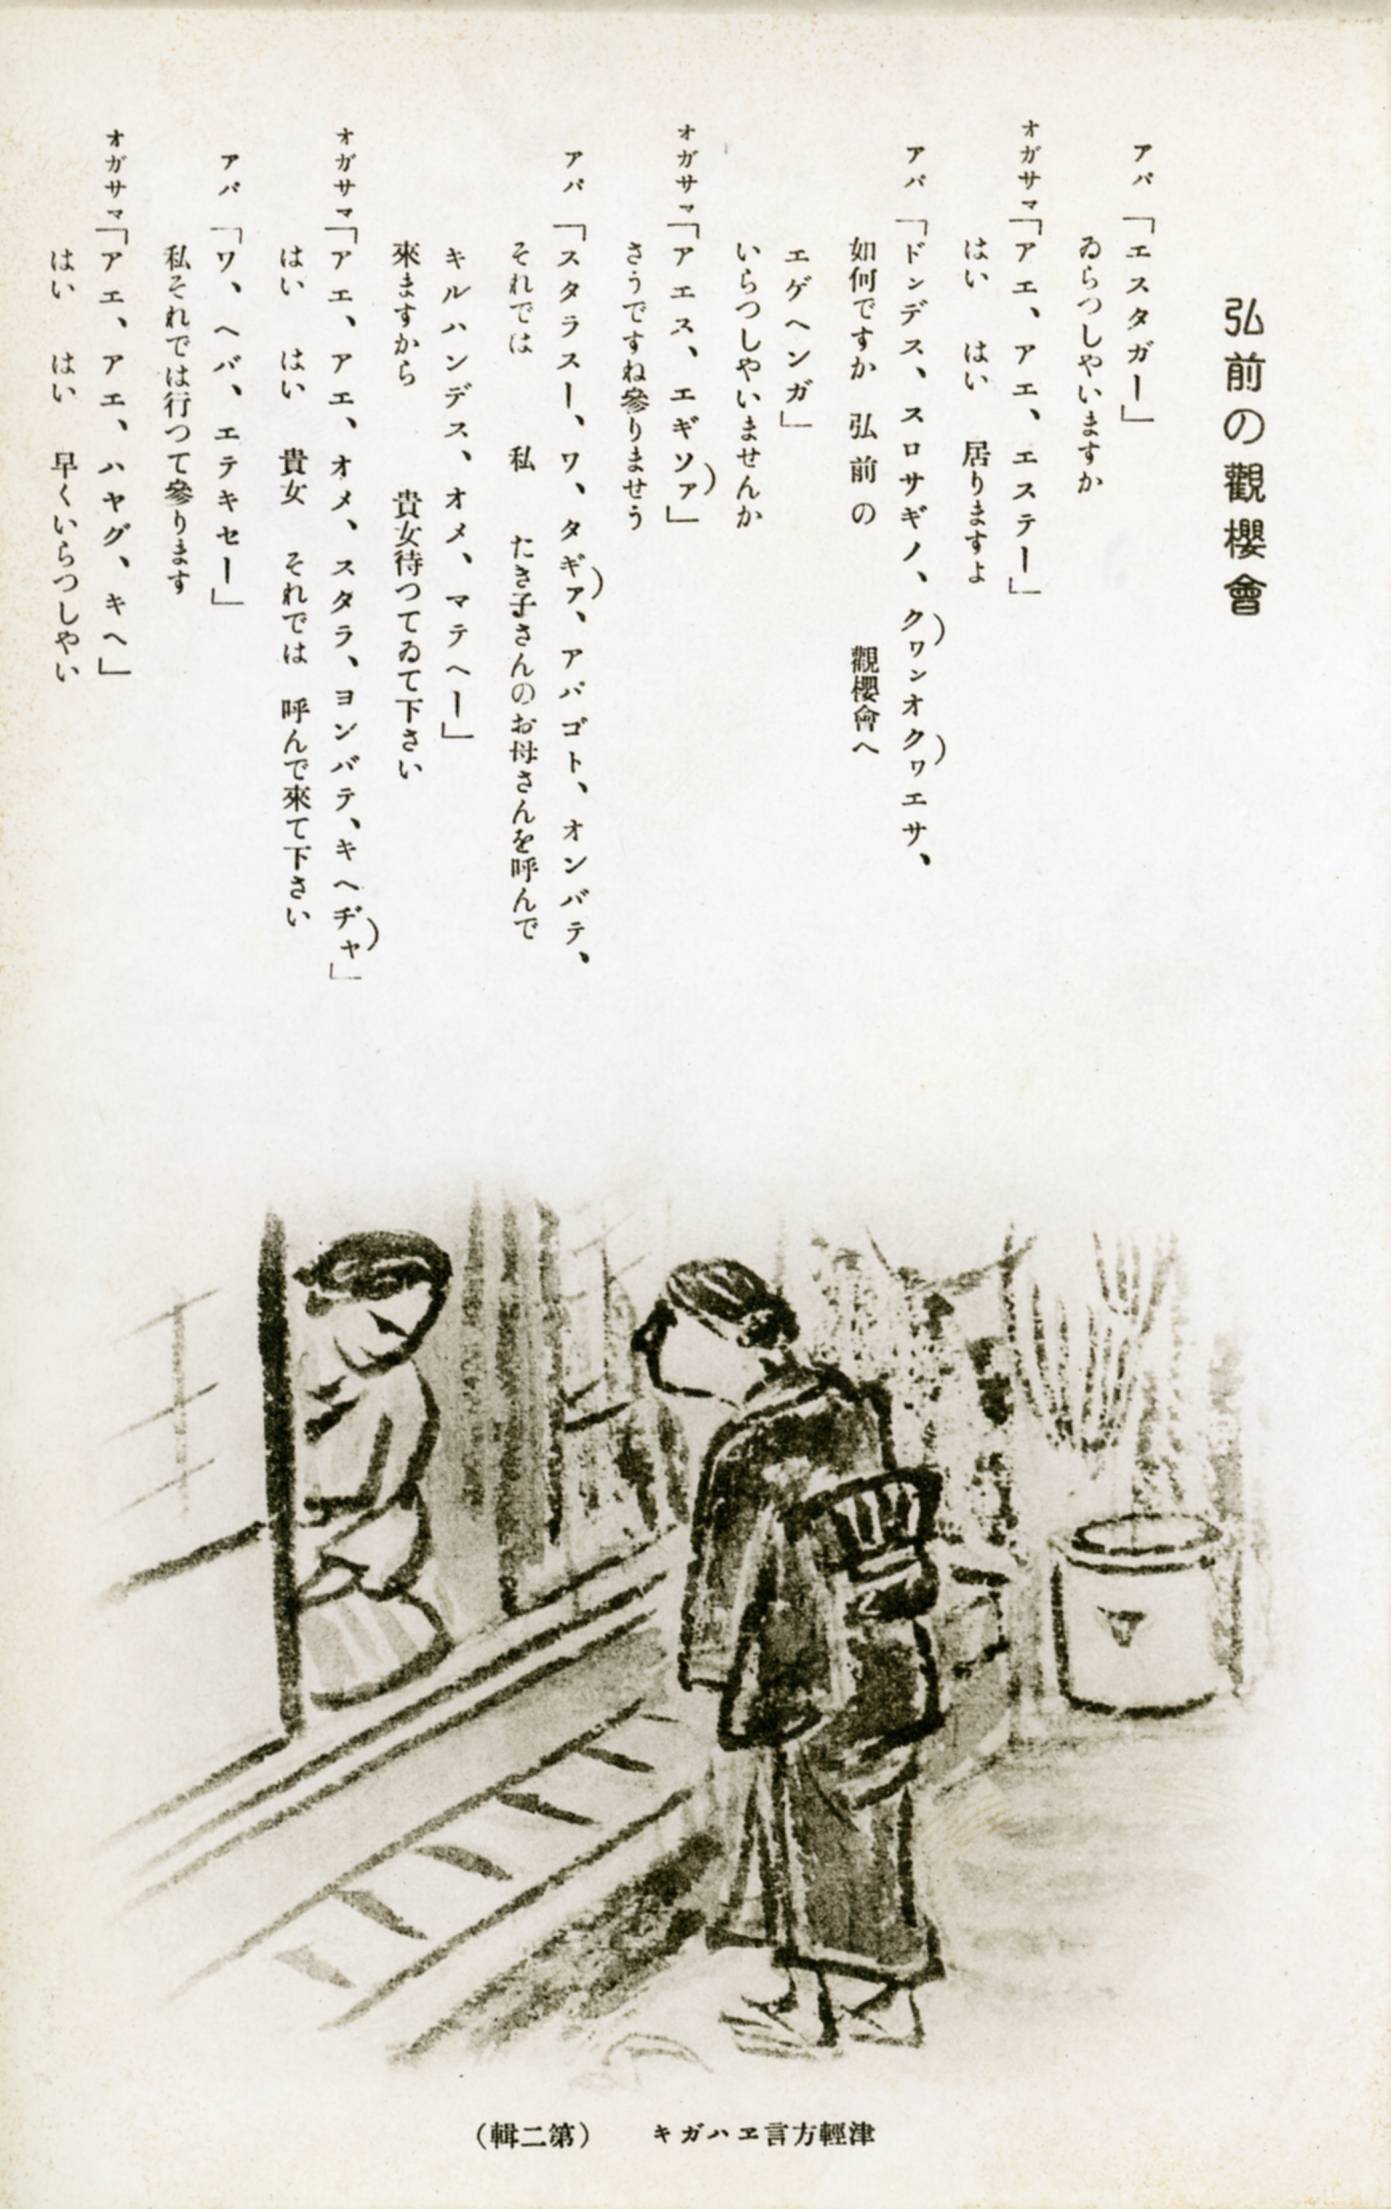 弘前の觀櫻會
アバ「エスタガー」
ゐらつしやいますか
オガサマ「アエ、アエ、エステー」
はい はい 居りますよ
アバ「ドンデス、スロサギノ、クワンオクワエサ、
如何ですか 弘前の 觀櫻會へ
エゲヘンガ」
いらつしやいませんか
オガサマ「アエス、エギソァ」
さうですね參りませう
アバ「スタラスー、ワ、タギァ、アバゴト、オンバテ、
それでは 私 たき子さんのお母さんを呼んで
キルハンデス、オメ、マテヘー」
來ますから 貴女待つてゐて下さい
オガサマ「アエ、アエ、オメ、スタラ、ヨンバテ、キヘヂャ」
はい はい 貴女 それでは 呼んで來て下さい
アバ「ワ、ヘバ、エテキセー」
私それでは行つて參ります
オガサマ「アエ、アエ、ハヤグ、キヘ」
はい はい 早くいらつしやい
津輕方言ヱハガキ (第二輯)